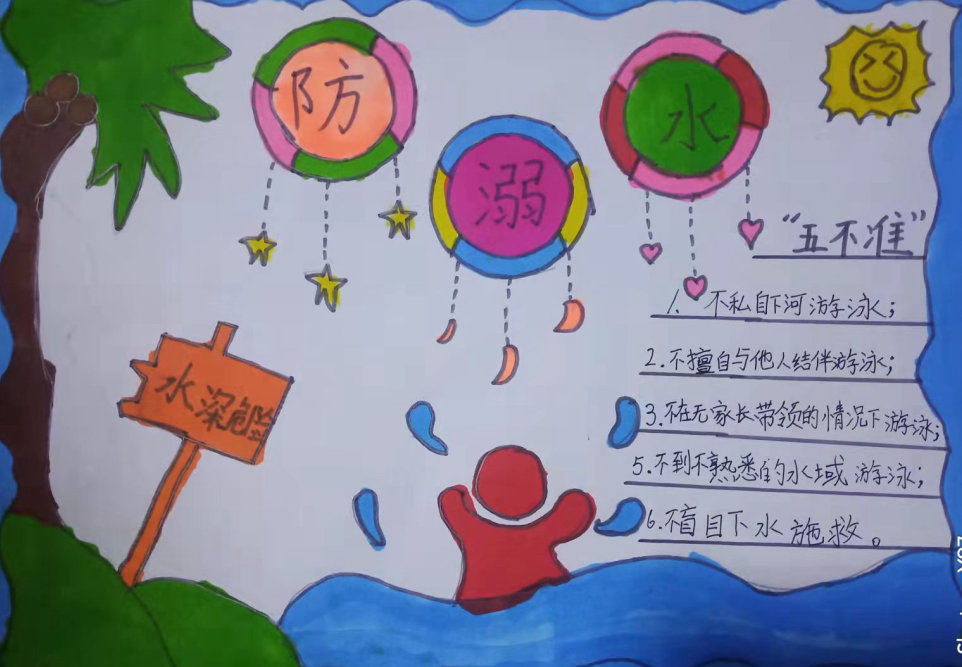 防 溺 水
"五不准"
1. 不私自下河游泳;
2.不擅自与他人结伴游泳;
3.不在无家长带领的情况下游泳;
5.不到不熟悉的水域游泳;
6.不盲目下水施救。
水深危险